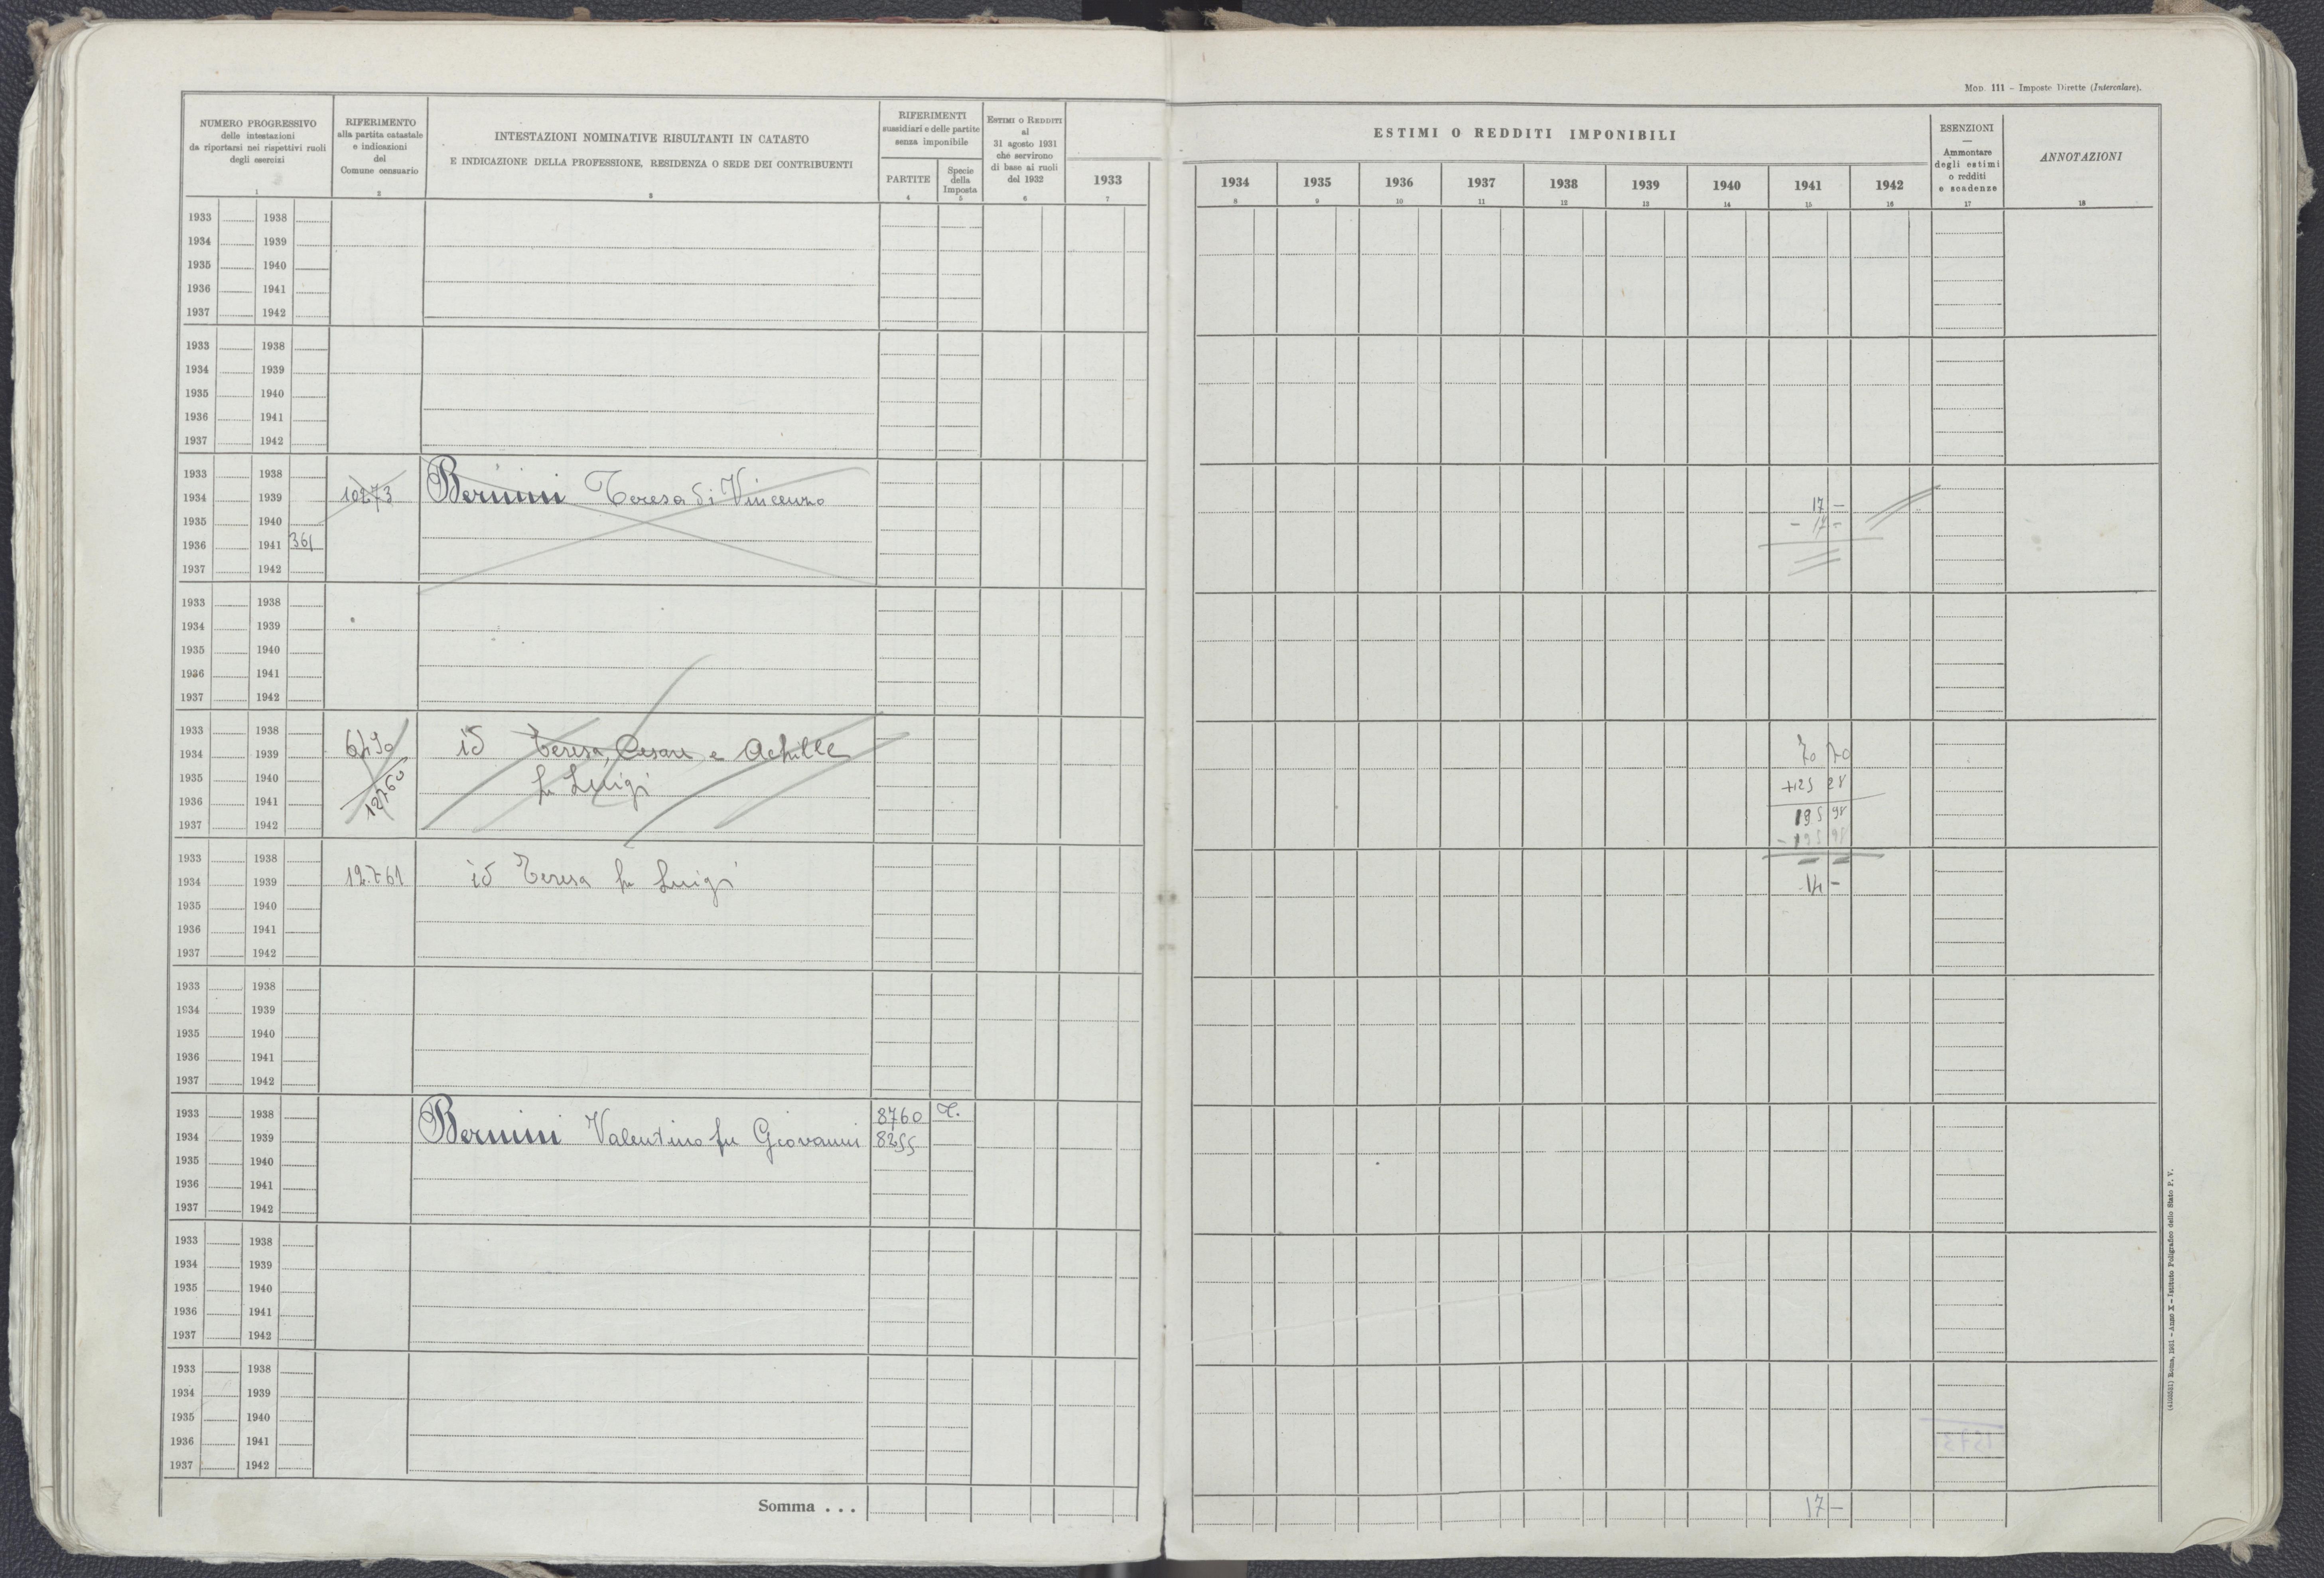 Mod. 111 – Imposte Dirette (Intercalare).
NUMERO PROGRESSIVO
delle intestazioni
da riportarsi nei rispettivi ruoli
degli esercizi
1
RIFERIMENTO
alla partita catastale
e indicazioni
del
Comune censuario
2
INTESTAZIONI NOMINATIVE RISULTANTI IN CATASTO
E INDICAZIONE DELLA PROFESSIONE, RESIDENZA O SEDE DEI CONTRIBUENTI
3
RIFERIMENTI
sussidiari e delle partite
senza imponibile
PARTITE
4
Specie
della
Imposta
5
Estimi o Redditi
al
31 agosto 1931
che servirono
di base ai ruoli
del 1932
6
1933
7
ESTIMI O REDDITI IMPONIBILI
1934 1935 1936 1937 1938 1939 1940 1941 1942
8 9 10 11 12 13 14 15 16
ESENZIONI
—
Ammontare
degli estimi
o redditi
e scadenze
17
ANNOTAZIONI
18
1933 1938
1934 1939
1935 1940
1936 1941
1937 1942
1933 1938
1934 1939
1935 1940
1936 1941
1937 1942
1933 1938
1934 1939 10273 Bernini Teresa di Vincenzo 17 –
1935 1940 – 17 –
1936 1941 361
1937 1942
1933 1938
1934 1939
1935 1940
1936 1941
1937 1942
1933 1938
1934 1939 id Teresa, Cesare e Achille 70 70
1935 1940 12760 fu Luigi +125 28
1936 1941 195 98
1937 1942 – 195 98
1933 1938
1934 1939 12761 id Teresa fu Luigi 14 –
1935 1940
1936 1941
1937 1942
1933 1938
1934 1939
1935 1940
1936 1941
1937 1942
1933 1938 8760 T.
1934 1939 Bernini Valentino fu Giovanni 8255
1935 1940
1936 1941
1937 1942
1933 1938
1934 1939
1935 1940
1936 1941
1937 1942
1933 1938
1934 1939
1935 1940
1936 1941
1937 1942
Somma . . . 17 –
Roma, 1931 – Anno X – Istituto Poligrafico dello Stato P. V.